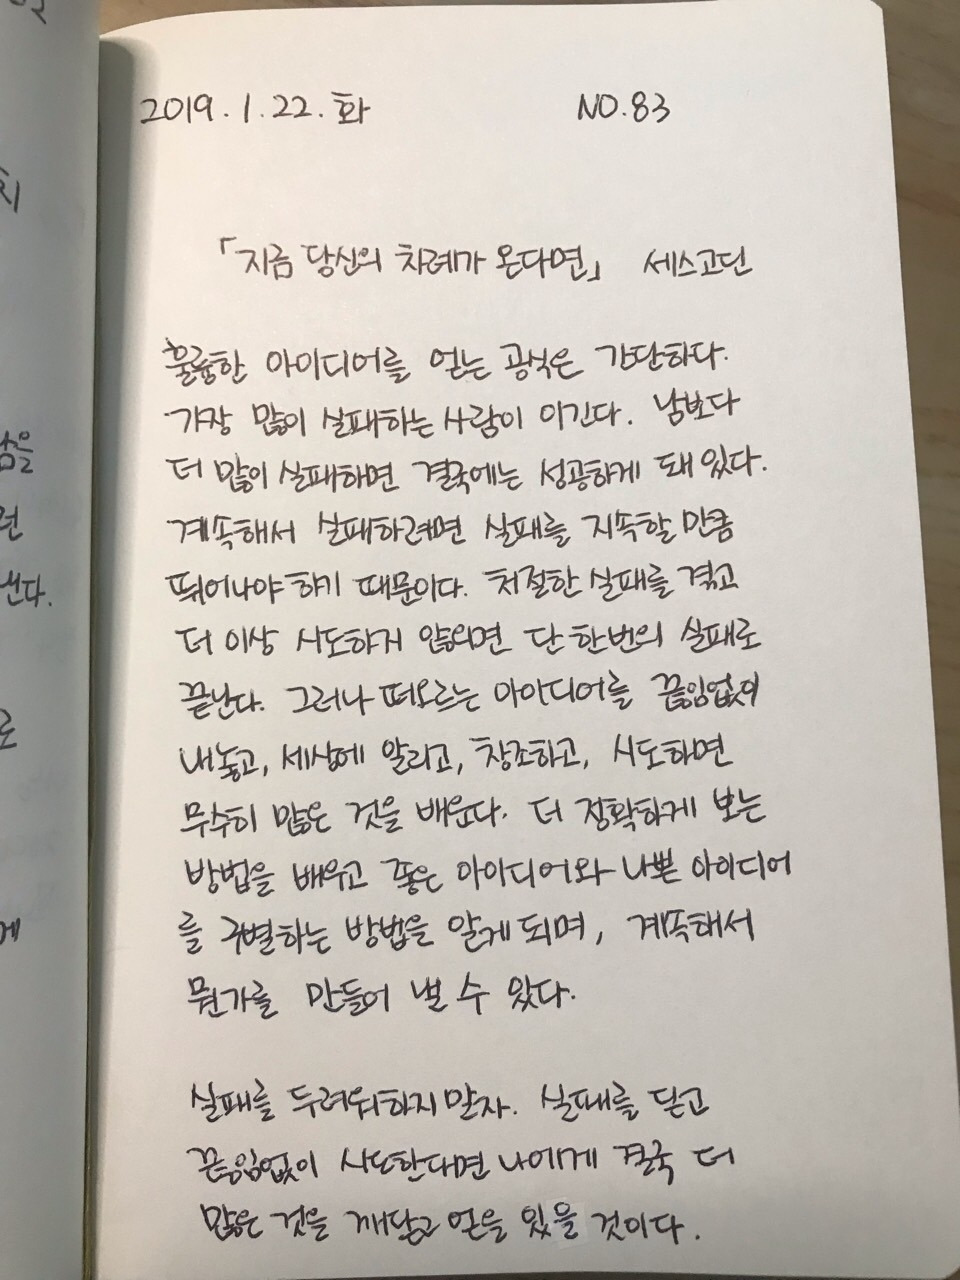 2019.1.22.화 NO.83
「지금 당신의 차례가 온다면」 세스고딘
훌륭한 아이디어를 얻는 공식은 간단하다.
가장 많이 실패하는 사람이 이긴다. 남보다
더 많이 실패하면 결국에는 성공하게 돼 있다.
계속해서 실패하려면 실패를 지속할 만큼
뛰어나야 하기 때문이다. 처절한 실패를 겪고
더 이상 시도하지 않으면 단 한번의 실패로
끝난다. 그러나 떠오르는 아이디어를 끊임없이
내놓고, 세상에 알리고, 창조하고, 시도하면
무수히 많은 것을 배운다. 더 정확하게 보는
방법을 배우고 좋은 아이디어와 나쁜 아이디어
를 구별하는 방법을 알게 되며, 계속해서
뭔가를 만들어 낼 수 있다.
실패를 두려워하지 말자. 실패를 딛고
끊임없이 시도한다면 나에게 결국 더
많은 것을 깨닫고 얻을 있을 것이다.
치
음은
런
낸다.
로
게